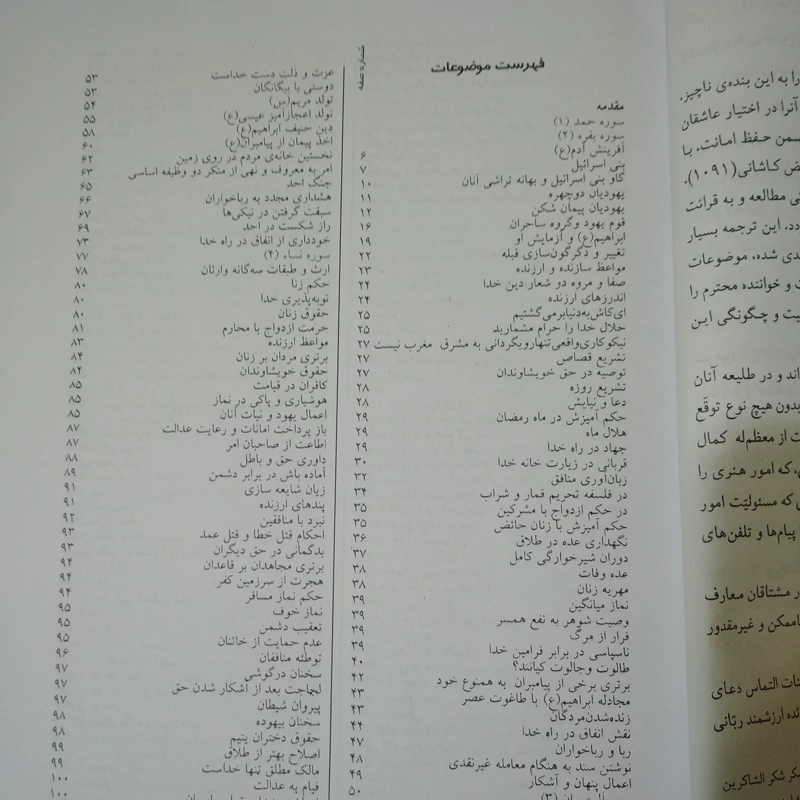 فهرست موضوعات
شماره صفحه
مقدمه
سوره حمد (۱)
سوره بقره (۲)
آفرینش آدم(ع) ۶
بنی اسرائیل ۷
گاو بنی اسرائیل و بهانه تراشی آنان ۱۰
یهودیان دوچهره ۱۱
یهودیان پیمان شکن ۱۲
قوم یهود وگروه ساحران ۱۶
ابراهیم(ع) و آزمایش او ۱۹
تغییر و دگرگون‌سازی قبله ۲۲
مواعظ سازنده و ارزنده ۲۳
صفا و مروه دو شعار دین خدا ۲۴
اندرزهای ارزنده ۲۴
ای‌کاش‌به‌دنیابرمی‌گشتیم ۲۵
حلال خدا را حرام مشمارید ۲۵
نیکوکاری‌واقعی‌تنهارویگردانی به مشرق مغرب نیست ۲۷
تشریع قصاص ۲۷
توصیه در حق خویشاوندان ۲۷
تشریع روزه ۲۸
دعا و نیایش ۲۸
حکم آمیزش در ماه رمضان ۲۹
هلال ماه ۲۹
جهاد در راه خدا ۲۹
قربانی در زیارت خانه خدا ۳۰
زبان‌آوری منافق ۳۲
در فلسفه تحریم قمار و شراب ۳۴
در حکم ازدواج با مشرکین ۳۵
حکم آمیزش با زنان حائض ۳۵
نگهداری عده در طلاق ۳۶
دوران شیرخوارگی کامل ۳۷
عده وفات ۳۸
مهریه زنان ۳۸
نماز میانگین ۳۹
وصیت شوهر به نفع همسر ۳۹
فرار از مرگ ۳۹
ناسپاسی در برابر فرامین خدا ۳۹
طالوت وجالوت کیانند؟ ۴۰
برتری برخی از پیامبران به همنوع خود ۴۲
مجادله ابراهیم(ع) با طاغوت عصر ۴۳
زنده‌شدن‌مردگان ۴۳
نقش انفاق در راه خدا ۴۴
ربا و رباخواران ۴۷
نوشتن سند به هنگام معامله غیرنقدی ۴۸
اعمال پنهان و آشکار ۴۹
۵۰
عزت و ذلت دست خداست ۵۳
دوستی با بیگانگان ۵۳
تولد مریم(س) ۵۴
تولد اعجازآمیز عیسی(ع) ۵۵
دین حنیف ابراهیم(ع) ۵۸
اخذ پیمان از پیامبران(ع) ۶۰
نخستین خانه‌ی مردم در روی زمین ۶۲
امر به معروف و نهی از منکر دو وظیفه اساسی ۶۳
جنگ احد ۶۵
هشداری مجدد به رباخواران ۶۶
سبقت گرفتن در نیکی‌ها ۶۷
راز شکست در احد ۶۹
خودداری از انفاق در راه خدا ۷۳
سوره نساء (۴) ۷۷
ارث و طبقات سه‌گانه وارثان ۷۸
حکم زنا ۸۰
توبه‌پذیری خدا ۸۰
حقوق زنان ۸۰
حرمت ازدواج با محارم ۸۱
مواعظ ارزنده ۸۳
برتری مردان بر زنان ۸۴
حقوق خویشاوندان ۸۴
کافران در قیامت ۸۵
هوشیاری و پاکی در نماز ۸۵
اعمال یهود و نیات آنان ۸۵
باز پرداخت امانات و رعایت عدالت ۸۷
اطاعت از صاحبان امر ۸۷
داوری حق و باطل ۸۸
آماده باش در برابر دشمن ۸۹
زیان شایعه سازی ۹۱
پندهای ارزنده ۹۱
نبرد با منافقین ۹۲
احکام قتل خطا و قتل عمد ۹۳
بدگمانی در حق دیگران ۹۳
برتری مجاهدان بر قاعدان ۹۴
هجرت از سرزمین کفر ۹۴
حکم نماز مسافر ۹۴
نماز خوف ۹۵
تعقیب دشمن ۹۵
عدم حمایت از خائنان ۹۵
توطئه منافقان ۹۶
سخنان درگوشی ۹۷
لجاجت بعد از آشکار شدن حق ۹۷
پیروان شیطان ۹۷
سخنان بیهوده ۹۸
حقوق دختران یتیم ۹۸
اصلاح بهتر از طلاق ۹۹
مالک مطلق تنها خداست ۹۹
قیام به عدالت ۱۰۰
۱۰۰
را به این بنده‌ی ناچیز،
آنرا در اختیار عاشقان
سمن حفظ امانت، با
ض کاشانی(۱۰۹۱)،
ی مطالعه و به قرائت
دد. این ترجمه بسیار
دی شده، موضوعات
ت و خواننده محترم را
یت و چگونگی این
اند و در طلیعه آنان
بدون هیچ نوع توقّع
ت از معظم‌له کمال
ی، که امور هنری را
ی که مسئولیّت امور
پیام‌ها و تلفن‌های
ر مشتاقان معارف
ناممکن و غیرمقدور
نات التماس دعای
نده ارزشمند ربّانی
کر شکر الشاکرین